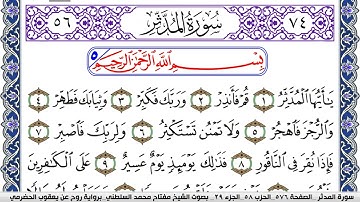 ٧٤ سُورَةُ الْمُدَّثِّرِ ٥٦
بِسْمِ اللَّهِ الرَّحْمَٰنِ الرَّحِيمِ
يَا أَيُّهَا الْمُدَّثِّرُ ١ قُمْ فَأَنذِرْ ٢ وَرَبَّكَ فَكَبِّرْ ٣ وَثِيَابَكَ فَطَهِّرْ ٤
وَالرُّجْزَ فَاهْجُرْ ٥ وَلَا تَمْنُن تَسْتَكْثِرُ ٦ وَلِرَبِّكَ فَاصْبِرْ ٧
فَإِذَا نُقِرَ فِي النَّاقُورِ ٨ فَذَٰلِكَ يَوْمَئِذٍ يَوْمٌ عَسِيرٌ ٩ عَلَى الْكَافِرِينَ
سورة المدثر الصفحة ٥٧٦ الحزب ٥٨ الجزء ٢٩ بصوت الشيخ مفتاح محمد السلطني برواية روح عن يعقوب الحضرمي